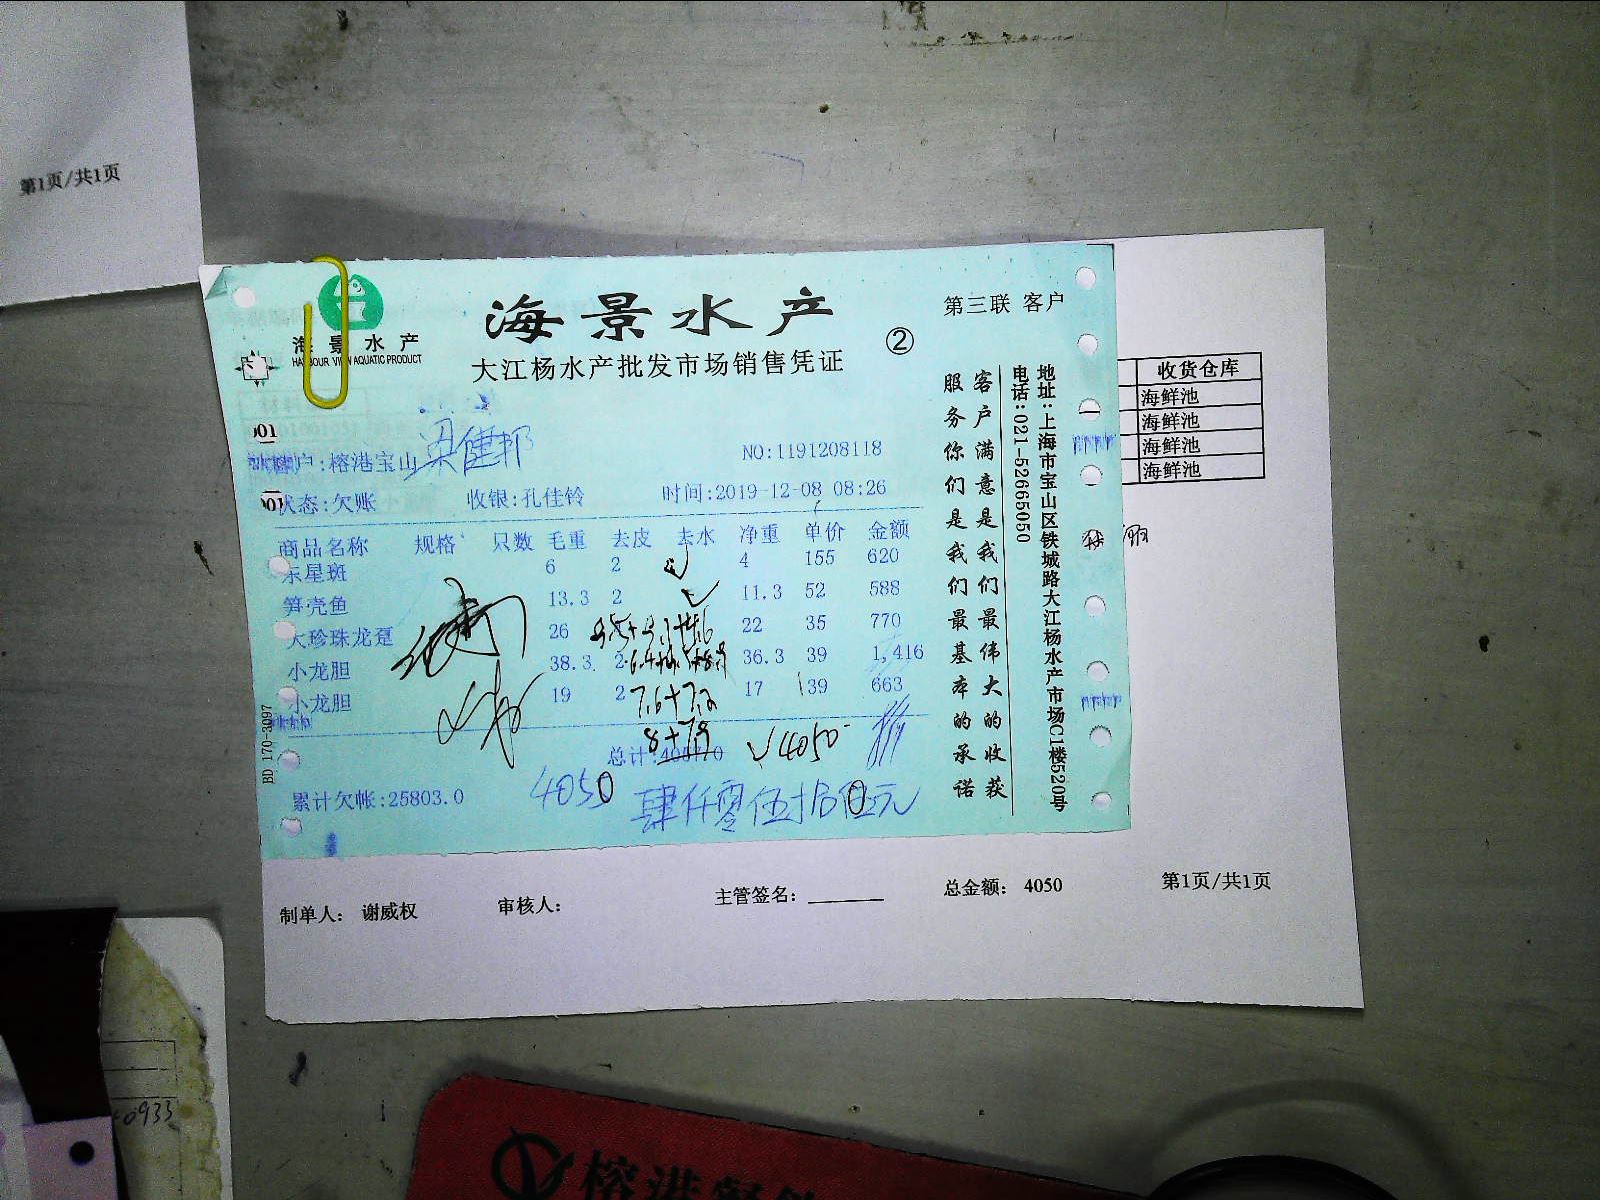 第1页/共1页
海景水产
HARBOUR VIEW AQUATIC PRODUCT
海景水产
大江杨水产批发市场销售凭证
②
第三联 客户
客户:榕港宝山
梁健邦
NO:1191208118
状态:欠账 收银:孔佳铃 时间:2019-12-08 08:26
商品名称 规格 只数 毛重 去皮 去水 净重 单价 金额
东星斑 6 2 4 155 620
笋壳鱼 13.3 2 11.3 52 588
大珍珠龙趸 26 22 35 770
小龙胆 38.3 2 36.3 39 1,416
小龙胆 19 2 17 39 663
7.6+7.2
8+7.9
总计:4057.0
✓4050
累计欠帐:25803.0
4050 肆仟零伍拾
元
客户满意是我们最伟大的收获
服务你们是我们最基本的承诺
地址:上海市宝山区铁城路大江杨水产市场C1楼520号
电话:021-52665050
BD 170-3097
001
001
收货仓库
海鲜池
海鲜池
海鲜池
海鲜池
制单人: 谢威权 审核人: 主管签名: 总金额: 4050 第1页/共1页
0933
榕港